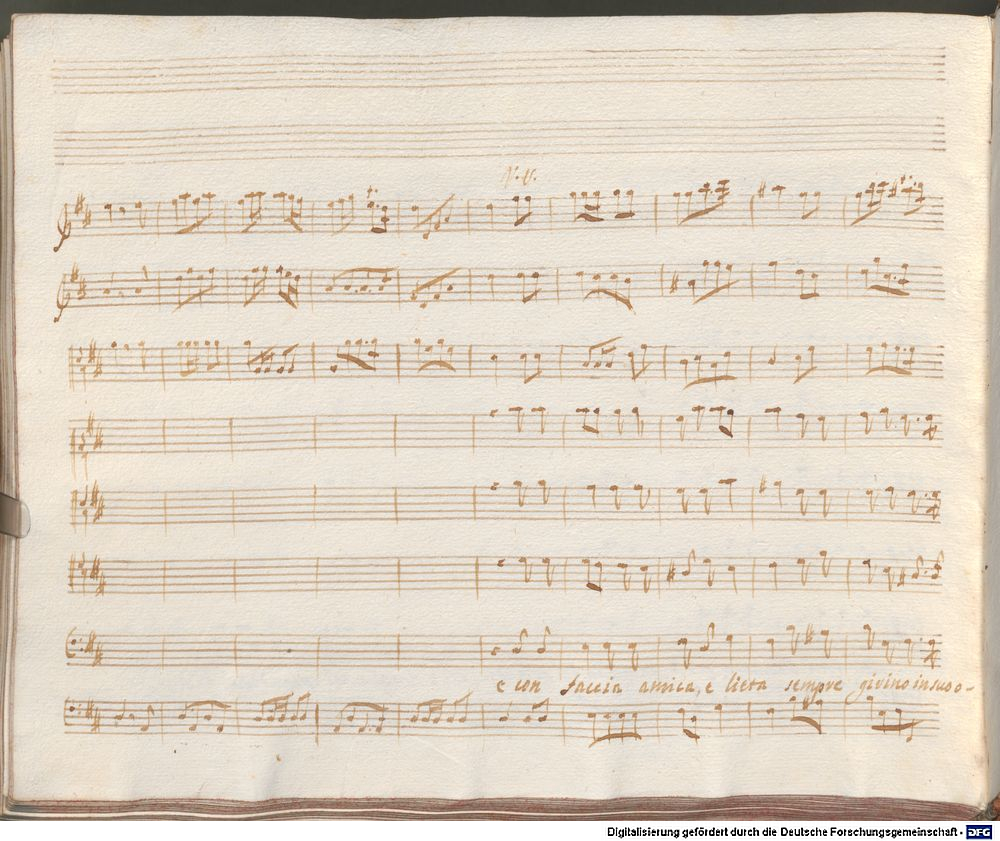 V. V.
e con faccia amica, e lieta sempre givino in suo o-
Digitalisierung gefördert durch die Deutsche Forschungsgemeinschaft - DFG